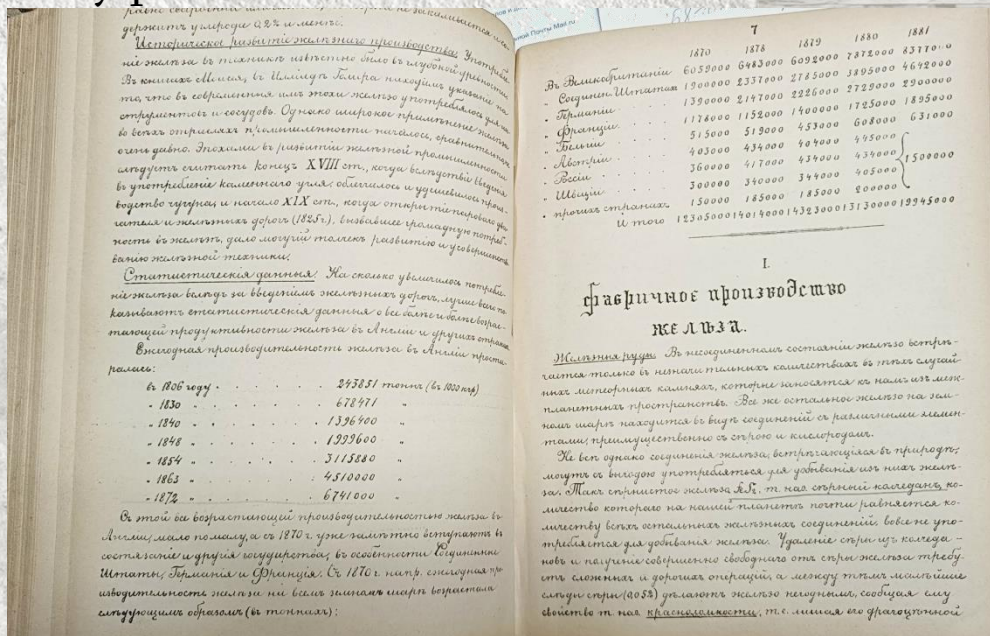 держитъ углерода 0,2% и менѣе.
Историческое развитіе желѣзнаго производства. Употребле-
ніе желѣза въ техникѣ извѣстно было въ глубокой древности
Въ книгахъ Моисея, въ Илліадѣ Гомера находимъ указаніе на
то, что въ современныя имъ эпохи желѣзо употреблялось для ин-
струментовъ и сосудовъ. Однако широкое примѣненіе желѣза
во всѣхъ отрасляхъ промышленности началось, сравнительно,
очень давно. Эпохами въ развитіи желѣзной промышленности
слѣдуетъ считать конецъ XVIII ст., когда вслѣдствіе введенія
въ употребленіе каменнаго угля облегчилось и удешевилось произ-
водство чугуна, и начало XIX ст., когда открытіе пароваго дви-
гателя и желѣзныхъ дорогъ (1825 г.), вызвавшее громадную потреб-
ность въ желѣзѣ, дало могучій толчекъ развитію и усовершенство-
ванію желѣзной техники.
Статистическія данныя. На сколько увеличилось потребле-
ніе желѣза вслѣдъ за введеніемъ желѣзныхъ дорогъ, лучше всего по-
казываютъ статистическія данныя о все болѣе и болѣе возрас-
тающей продуктивности желѣза въ Англіи и другихъ странахъ
Ежегодная производительность желѣза въ Англіи прости-
ралась:
въ 1806 году . . . . . 243851 тоннъ (въ 1000 кгр)
" 1830 " . . . . . 678471 "
" 1840 " . . . . . 1396400 "
" 1848 " . . . . . 1999600 "
" 1854 " . . . . . 3115880 "
" 1863 " . . . . . 4510000 "
" 1872 " . . . . . 6741000 "
Съ этой все возрастающей производительностью желѣза въ
Англіи, мало по малу, а съ 1870 г. уже замѣтно вступаютъ въ
состязаніе и другія государства, въ особенности Соединенные
Штаты, Германія и Франція. Съ 1870 г. напр. ежегодная про-
изводительность желѣза на всемъ земномъ шарѣ возрастала
слѣдующимъ образомъ (въ тоннахъ):
7
1870 1878 1879 1880 1881
Въ Великобританіи 6059000 6483000 6092000 7872000 8377000
" Соединен. Штатахъ 1900000 2337000 2785000 3895000 4642000
" Германіи . . . 1390000 2147000 2226000 2729000 2900000
" Франціи . . . 1178000 1152000 1400000 1725000 1895000
" Бельгіи . . . 515000 519000 453000 608000 631000
" Австріи . . . 403000 434000 404000 445000
" Россіи . . . 360000 417000 434000 434000 1500000
" Швеціи . . . 300000 340000 344000 405000
" прочихъ странахъ. 150000 185000 185000 200000
Итого 12305000 14014000 14323000 13130000 19945000
I.
Фабричное производство
желѣза.
Желѣзныя руды. Въ несоединенномъ состояніи желѣзо встрѣ-
чается только въ незначительныхъ количествахъ въ тѣхъ случай
ныхъ метеорныхъ камняхъ, которые заносятся къ намъ изъ меж-
планетныхъ пространствъ. Все же остальное желѣзо на зем-
номъ шарѣ находится въ видѣ соединеній съ различными элемен-
тами, преимущественно съ сѣрою и кислородомъ.
Не всѣ однако соединенія желѣза, встрѣчающіяся въ природѣ,
могутъ съ выгодою употребляться для добыванія изъ нихъ желѣ-
за. Такъ сѣрнистое желѣзо т. наз. сѣрный колчеданъ, ко-
личество котораго на нашей планетѣ почти равняется ко-
личеству всѣхъ остальныхъ желѣзныхъ соединеній, вовсе не упо-
требляется для добыванія желѣза. Удаленіе сѣры изъ колчеда-
новъ и полученіе совершенно свободнаго отъ сѣры желѣза требу-
етъ сложныхъ и дорогихъ операцій, а между тѣмъ малѣйшіе
слѣды сѣры (0,05%) дѣлаютъ желѣзо негоднымъ, сообщая ему
свойство т. наз. красноломкости, т. е. лишая его драгоцѣнной